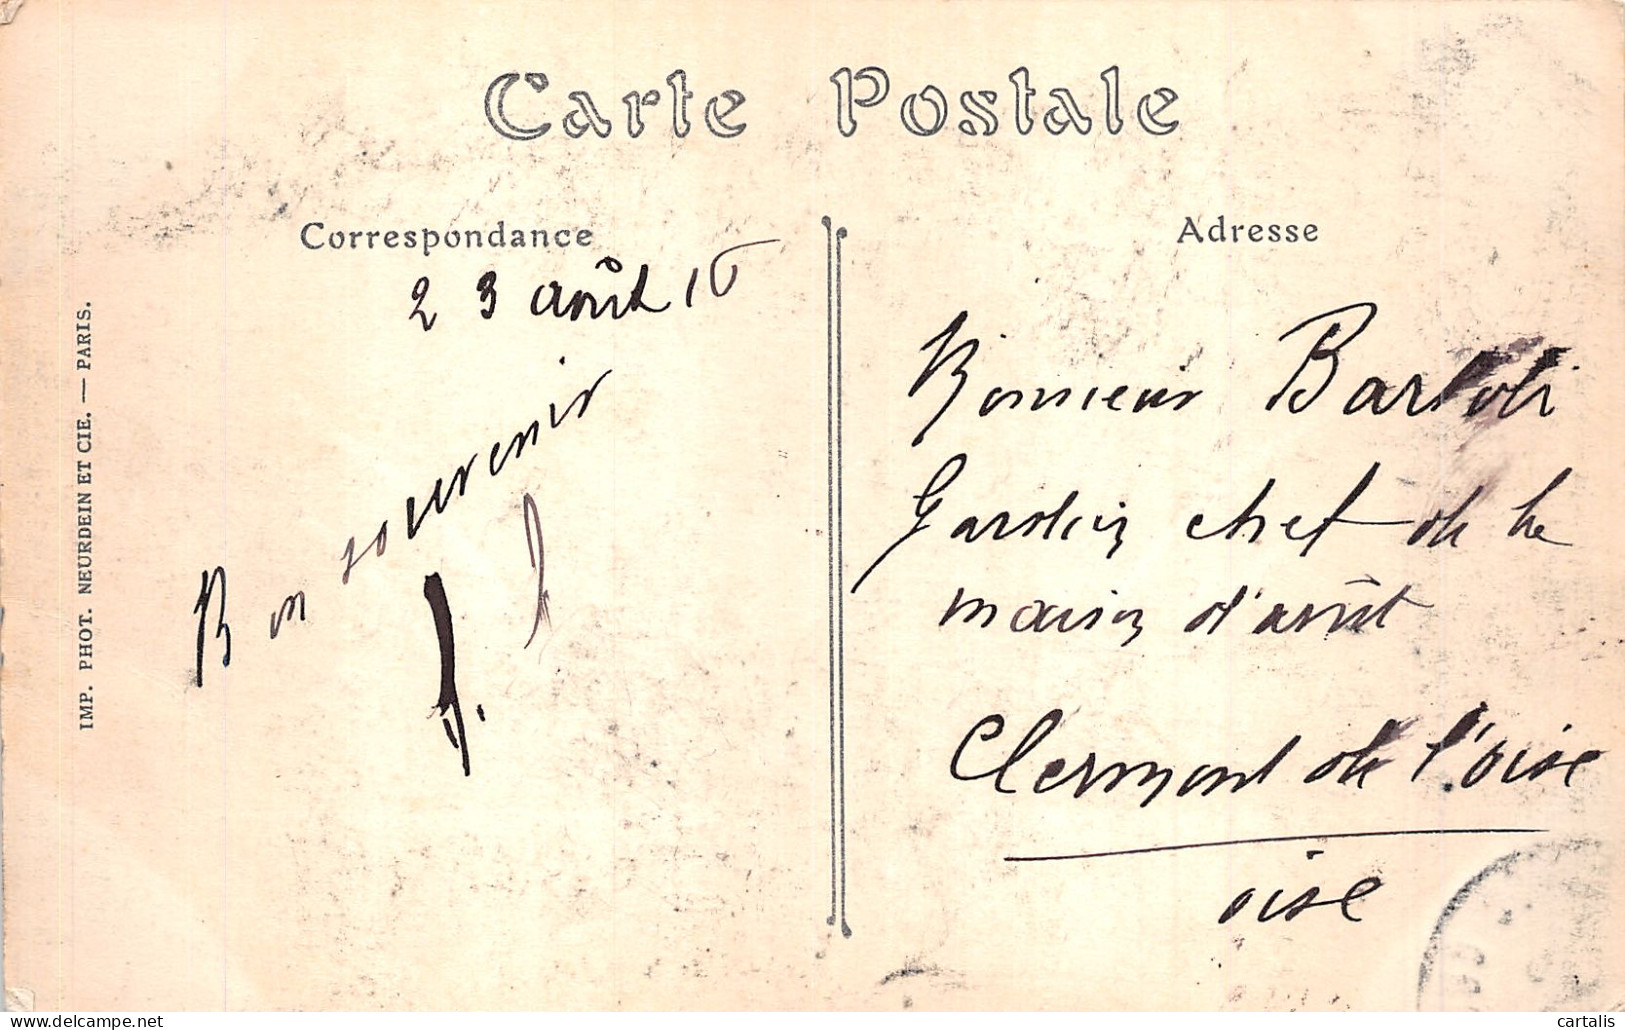 Carte Postale
Correspondance
23 août 16
Bon souvenir
Adresse
Monsieur Bartoli
Gardien chef de la
maison d'arrêt
Clermont de l'oise
oise
IMP. PHOT. NEURDEIN ET CIE. — PARIS.
cartalis